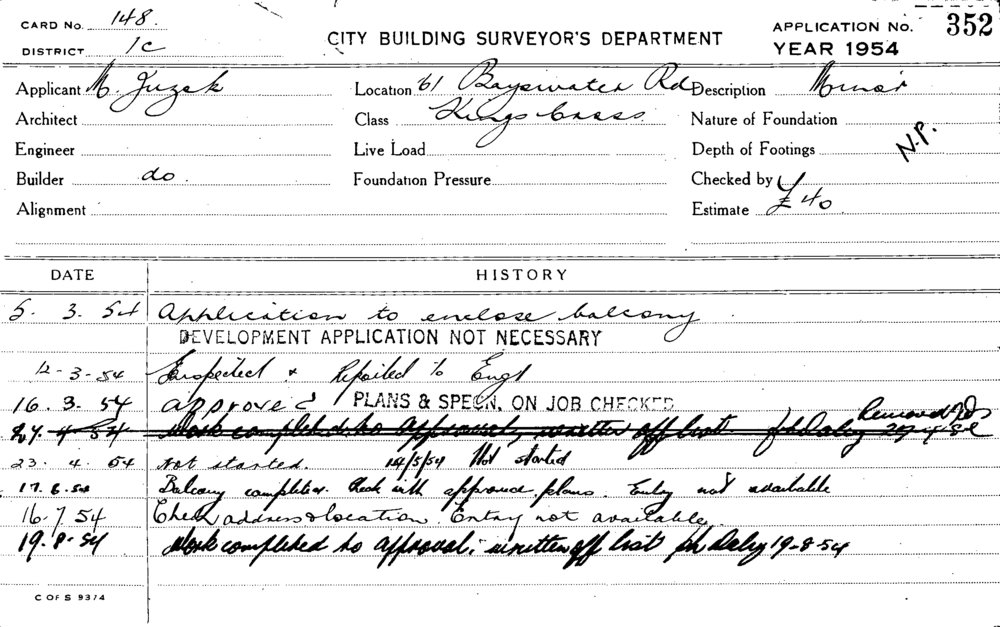 CARD No. 148.
DISTRICT 1c
CITY BUILDING SURVEYOR'S DEPARTMENT
APPLICATION No. 352
YEAR 1954
Applicant M. Juzek
Location 61 Bayswater Rd
Description Minor
Architect
Class Kings Cross
Nature of Foundation
Engineer
Live Load
Depth of Footings
N.P.
Builder do.
Foundation Pressure
Checked by
Alignment
Estimate £40
DATE HISTORY
5. 3. 54 Application to enclose balcony.
DEVELOPMENT APPLICATION NOT NECESSARY
12-3-54 Inspected & Reported to Engr
16. 3. 54 Approved PLANS & SPECN. ON JOB CHECKED
Work completed to Approval; written off list
23. 4. 54 Not started. 14/5/54 Not started
17. 6. 54 Balcony completed. Check with approved plans. Entry not available
16. 7 54 Check address & location. Entry not available.
19. 8. 54 Work completed to approval; written off list Daley 19-8-54
C OF S 9374